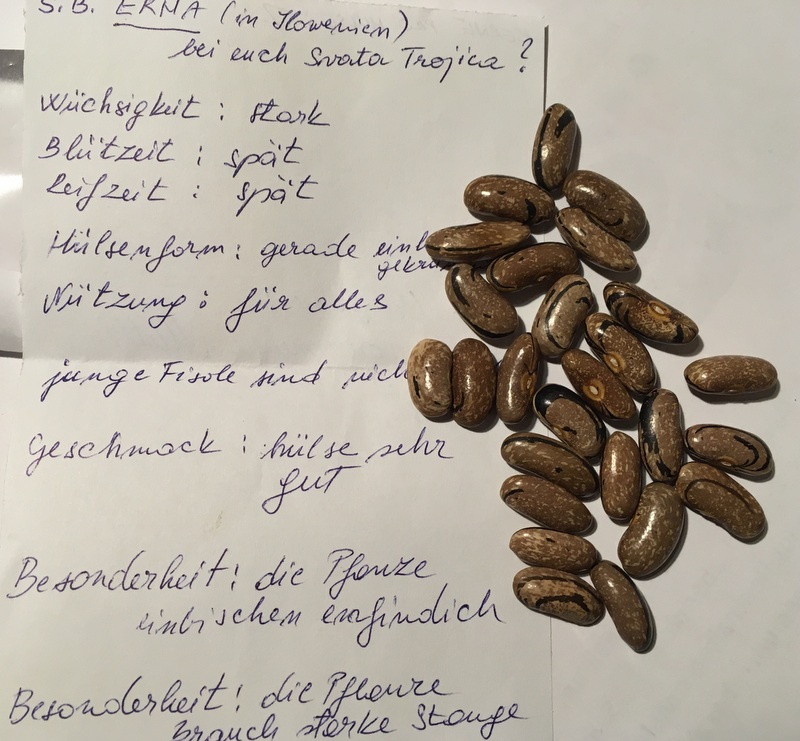 S.B. ERMA (in Slowenien)
bei euch Svata Trojica?
Wüchsigkeit: stark
Blützeit: spät
Leifzeit: spät
Hülsenform: gerade einb
gekrü
Nützung: für alles
junge Fisole sind nich
Geschmack: hülse sehr
gut
Besonderheit: die Pflanze
einbischen emfindich
Besonderheit: die Pflanze
brauch starke Stange